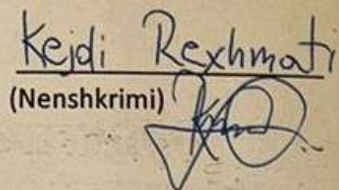 Kejdi Rexhmati
(Nenshkrimi)